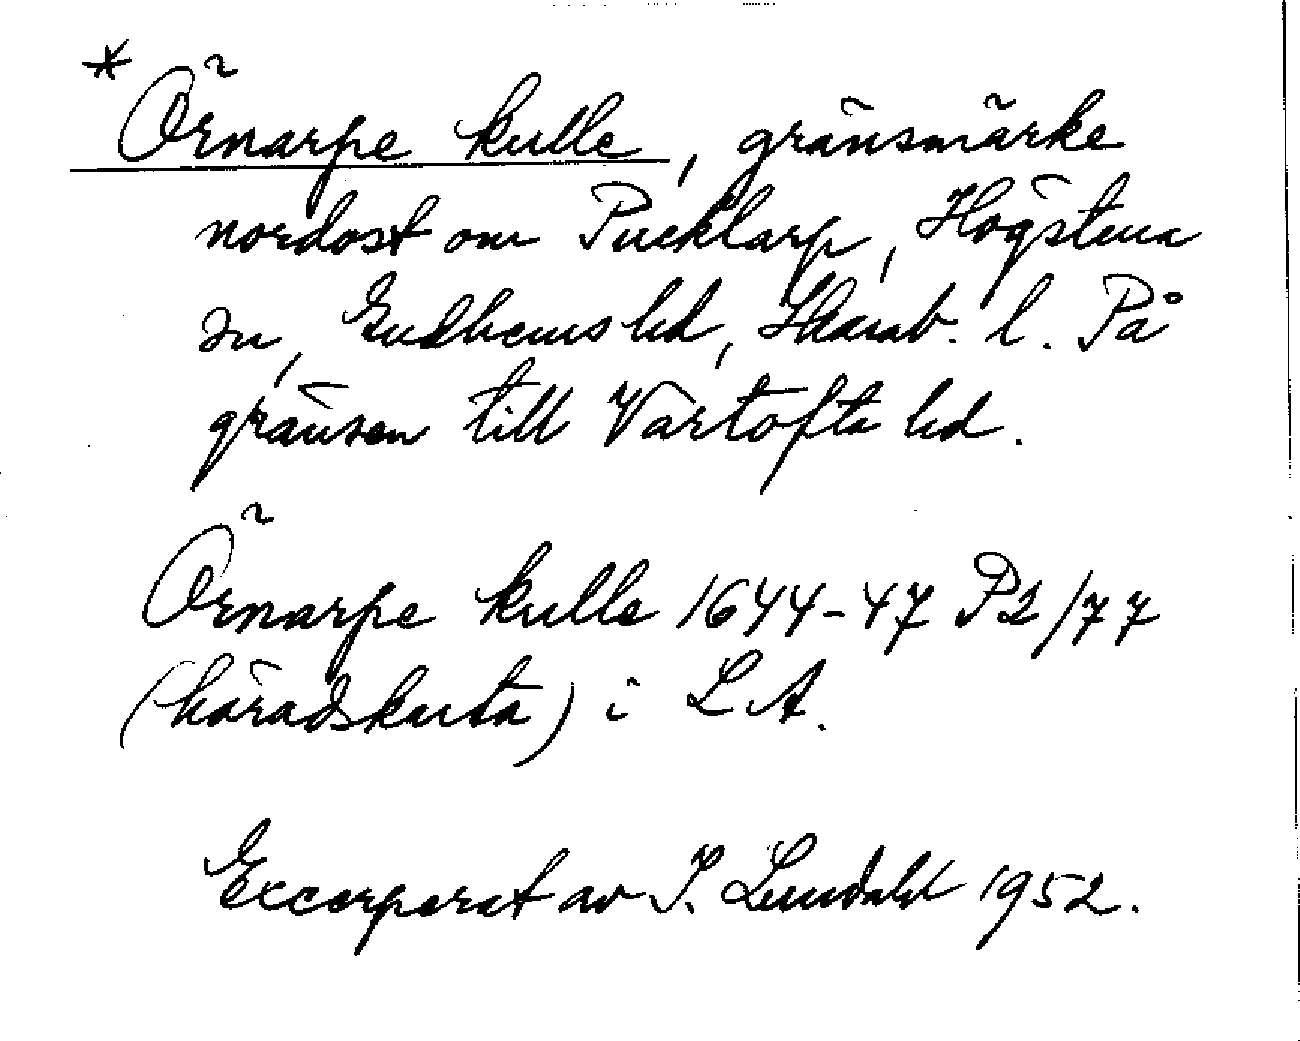 * Örnarpe kulle, gränsmärke
nordost om Pucklarp, Högstena
sn, Gudhems hd, Skarab. l. På
gränsen till Vartofta hd.
Örnarpe kulle 1644-47 P2/77
(häradskarta) i LA.
Excerperat av I. Lundahl 1952.